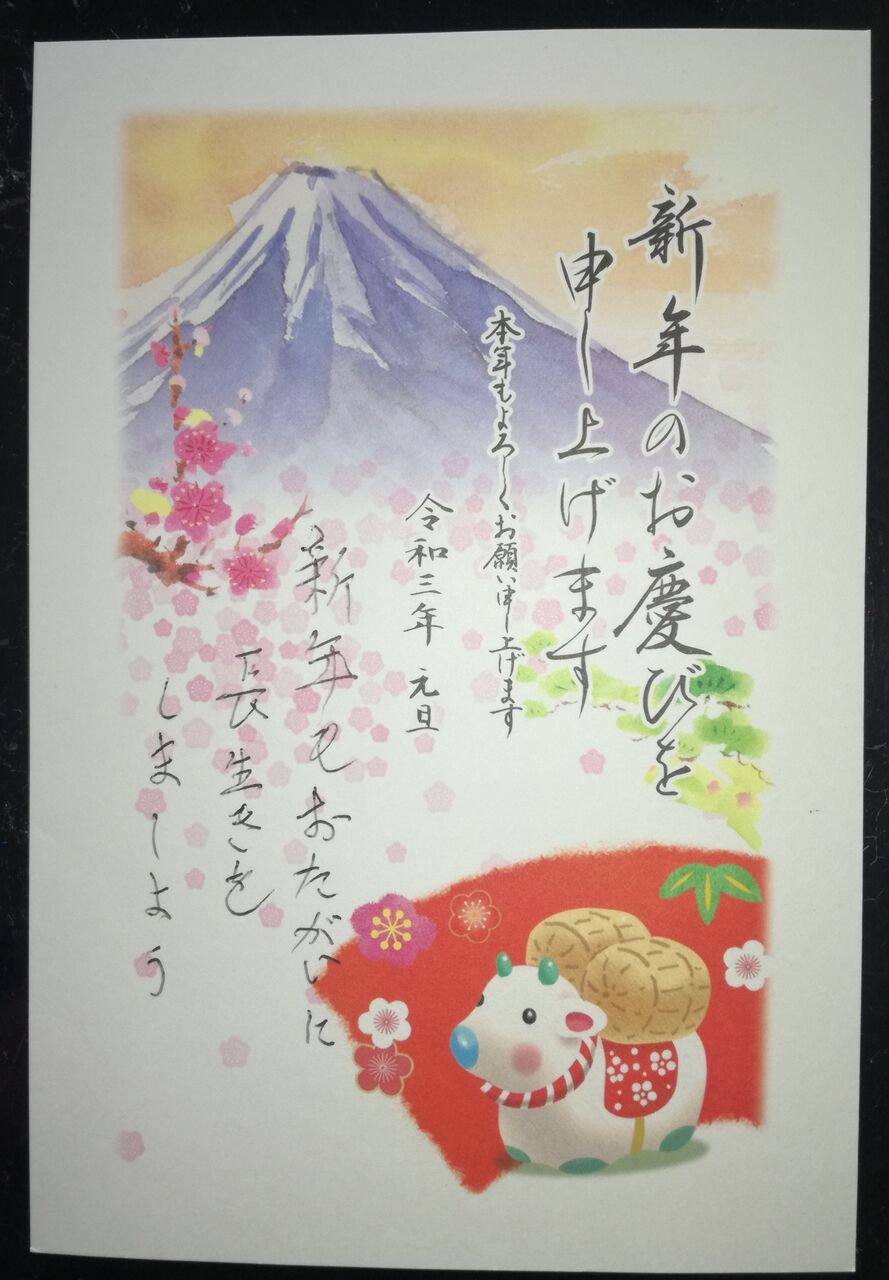 新年のお慶びを
申し上げます
本年もよろしくお願い申し上げます
令和三年 元旦
新年もおたがいに
長生きを
しましよう